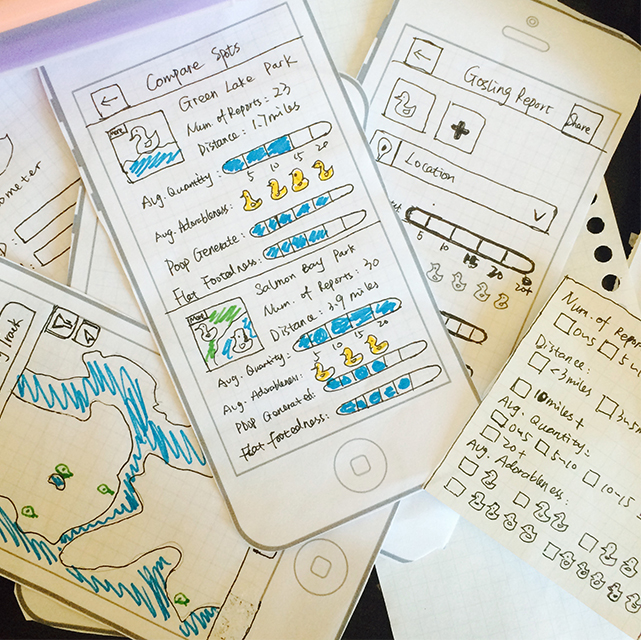 Compare Spots
←
Green Lake Park
More
Num of Reports: 23
Distance: 1.7 miles
Avg. Quantity:
5 10 15 20
Avg. Adorableness:
Poop Generate:
Flat Footedness:
Salmon Bay Park
More
Num. of Reports: 30
Distance: 3.9 miles
Avg. Quantity:
5 10 15 20
Avg. Adorableness:
Poop Generated:
Flat Footedness:
←
Gosling Report
Share
+
Location
5 10 15 20 20+
Num. of Repor
0~5
Distance:
<3 miles
10 miles +
Avg. Quantity:
0~5 5-10 10-15
20+
Avg. Adorableness:
ometer
Track